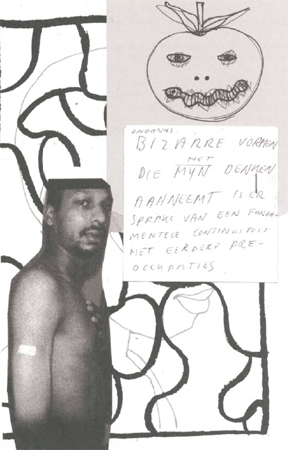 ONDANKS
BIZARRE VORMEN
DIE MYN DENKEN
AANNEEMT IS ER
SPRAKE VAN EEN FUNDA-
MENTELE CONTINUITEIT
MET EERDERE PRE-
OCCUPATIES